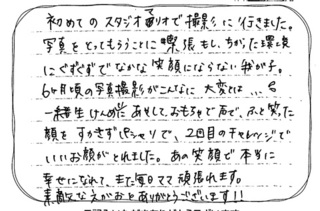 初めてのスタジオマリオで撮影に行きました。
写真をとってもらうことに緊張もし、ちがった環境
にぐずぐずでなかなか笑顔にならない我が子。
6ヶ月頃の写真撮影がこんなに大変とは…。
一緒に生けんめいあやして、おもちゃで声で、ふと笑った
顔をすかさずパシャリで、2回目のチャレンジで
いいお顔がとれました。あの笑顔で本当に
幸せになれて、また毎日ママ頑張れます。
素敵なえがおとありがとうございます!!